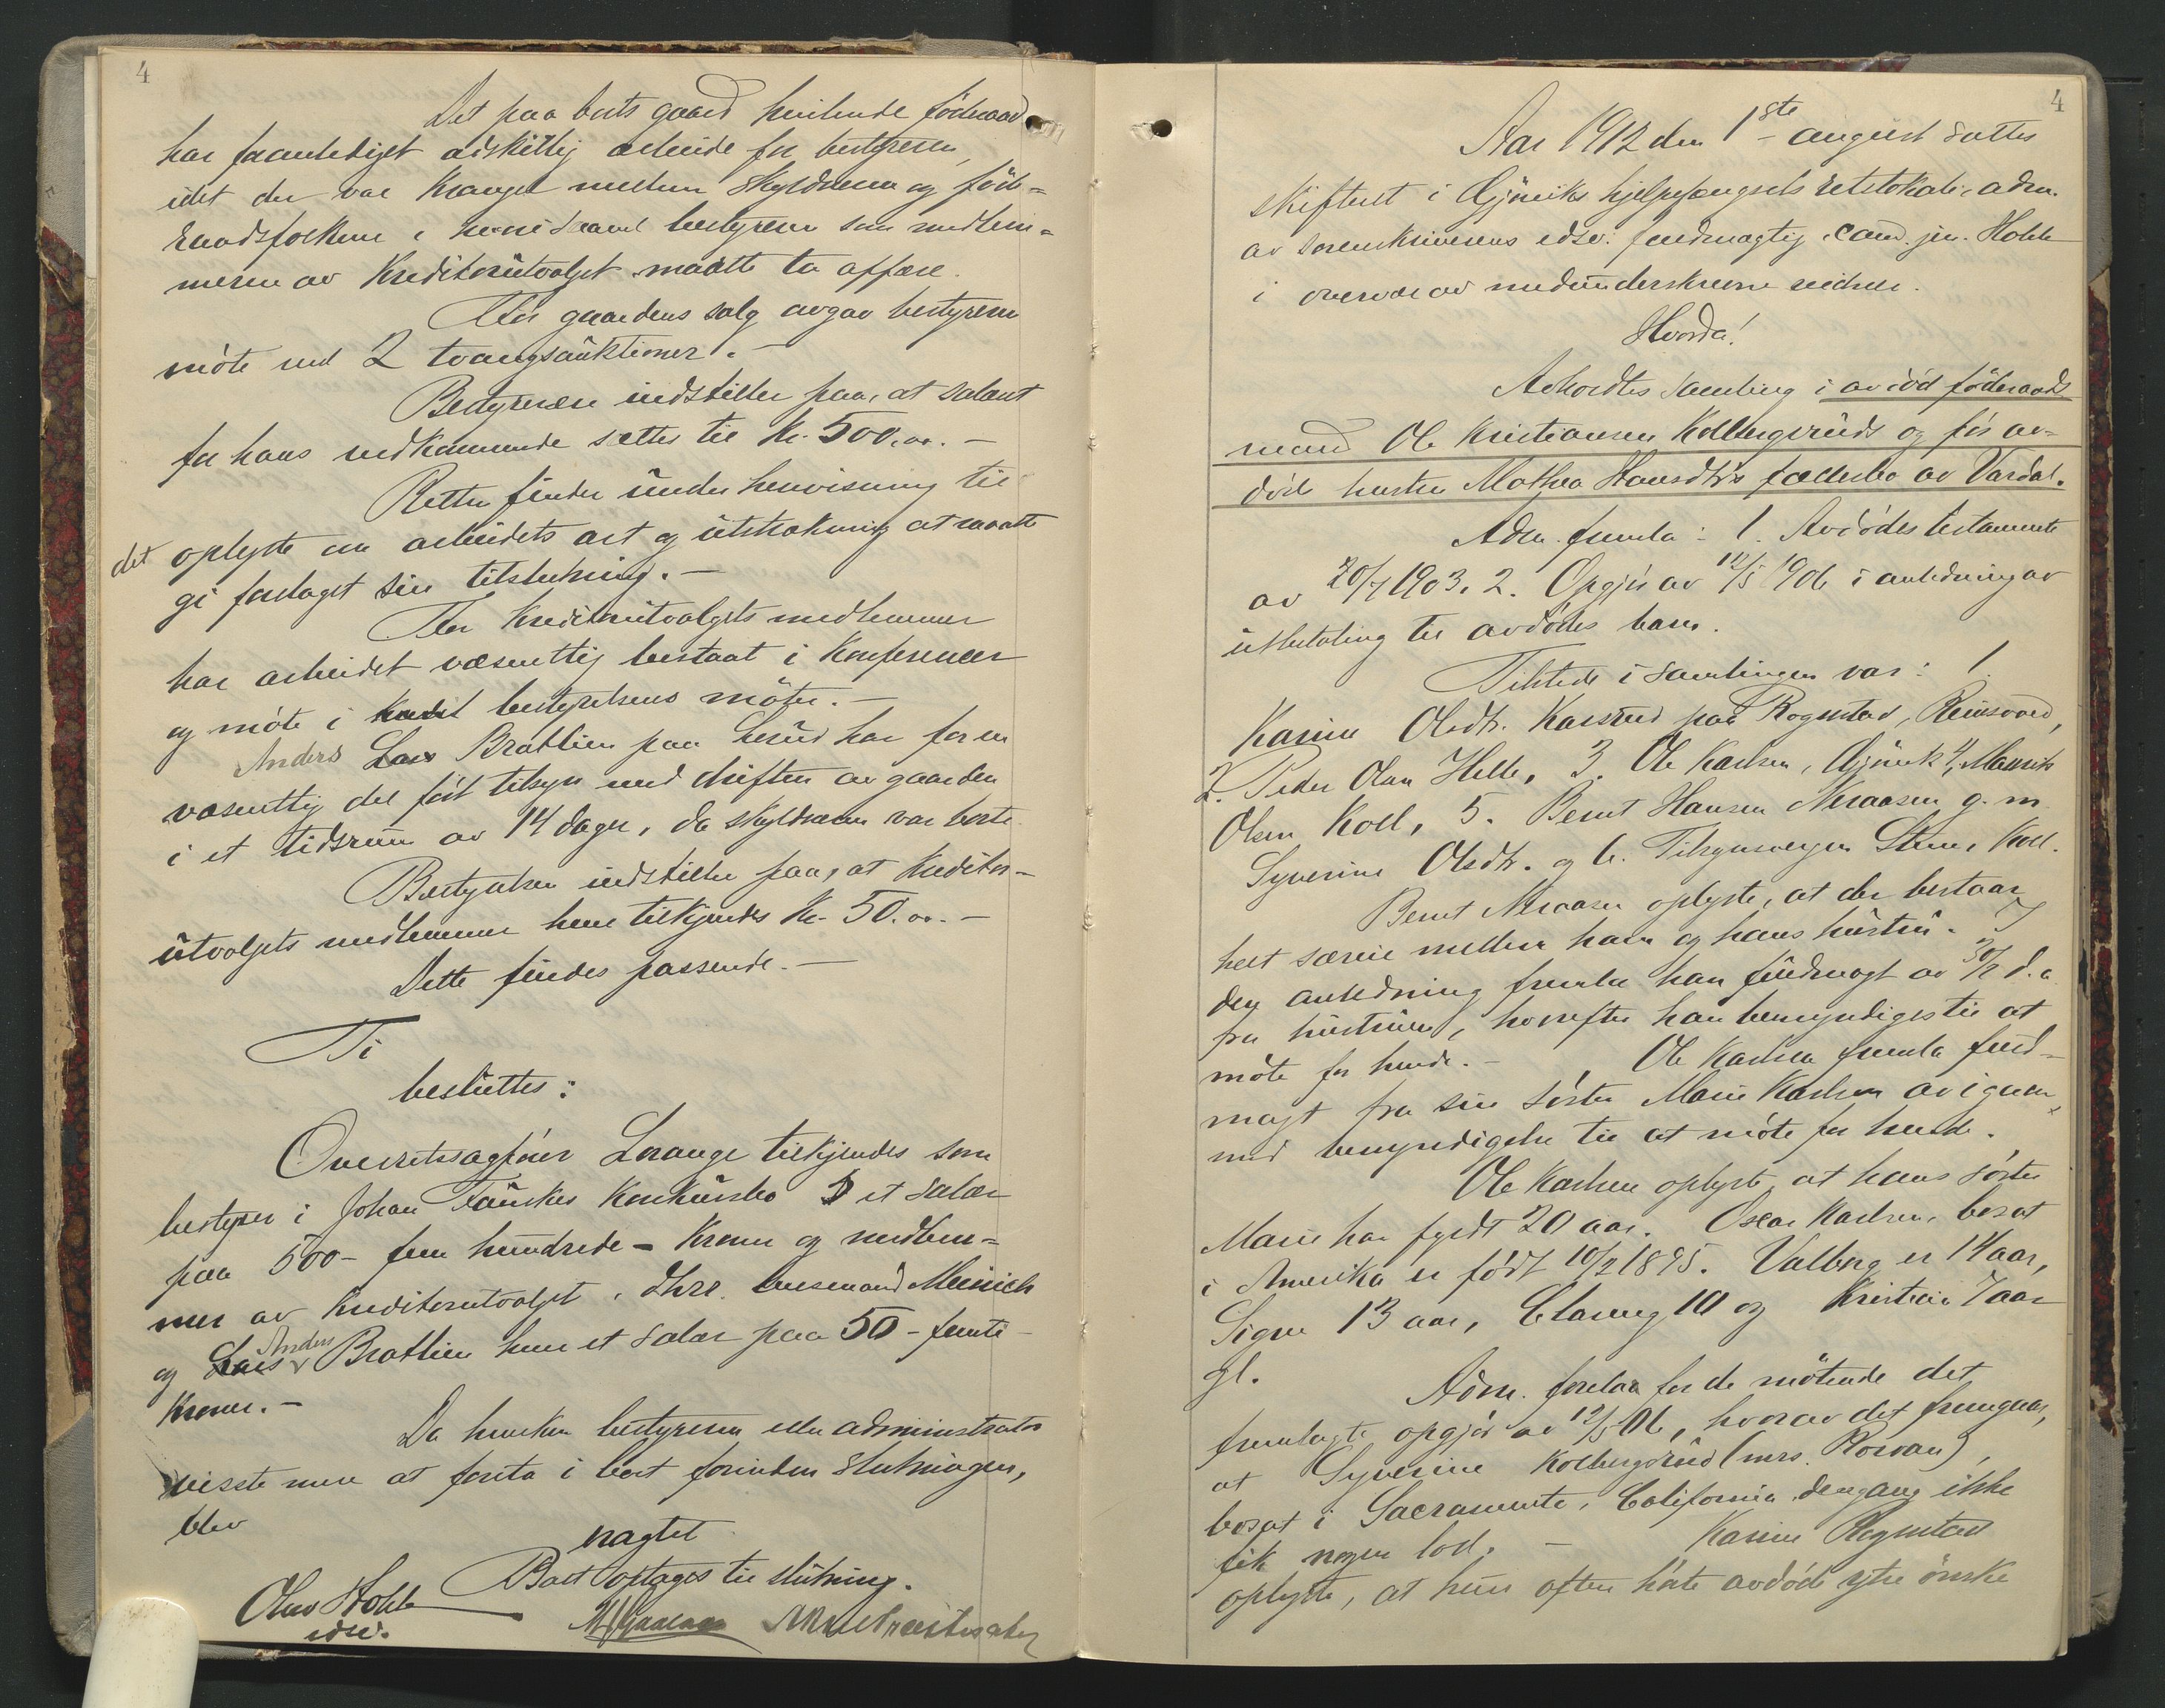 4
Det paa boets gaard hvilende föderaad
har foranlediget adskillig arbeide for bestyreren,
idet der var krangel mellem skyldneren og föde-
raadsfolkene, hvori saavel bestyreren som medlem-
merne av kreditorutvalget maatte ta affære.
Før gaardens salg avgav bestyreren
möte ved 2 tvangsauktioner. -
Bestyrelsen indstiller paa, at salæret
for hans vedkommende sættes til Kr. 500,00. -
Retten finder under henvisning til
det oplyste om arbeidets art og utstrækning at maatte
gi forslaget sin tilslutning. -
For kreditorutvalgets medlemmer
har arbeidet væsentlig bestaat i konferencer
og möte i bestyrelsens möter. -
Anders Lars Bratlien paa har for en
væsentlig del fört tilsyn med driften av gaarden
i et tidsrum av 14 dager, da skyldneren var borte.
Bestyrelsen indstiller paa, at kreditor-
utvalgets medlemmer hver tilkjendes Kr. 50.00. -
Dette findes passende. -
Ti
besluttes:
Overretssagförer Lorange tilkjendes som
bestyrer i Johan Fauskes konkursbo et salær
paa 500 - fem hundrede - Kroner og medlem-
mer av kreditorutvalget, d'hrr. lensmand Meinich
og Lars Anders Bratlien hver et salær paa 50 - femti -
Kroner. -
Da hverken bestyreren eller administrator
visste mere at foreta i boet forinden slutningen,
blev
vagtet
Boet optages til slutning.
Olav Holle
edsv.
4
Aar 1912 den 1ste august sattes
skifteret i Gjöviks hjelpefængsels retslokale, adm.
av sorenskriverens edsv. fuldmægtig cand. jur. Holle
i overvær av medunderskrevne vidner.
Hvorda!
Avholdtes samling i avdöd föderaads
mand Ole Kristiansen Kolbergsruds og før av-
döde hustru Mathea Hansdtr's fællesbo av Vardal.
Adm. fremla: 1. Avdödes testamente
av 20/7 1903. 2. Opgjör av 12/5 1906 i anledning av
utbetaling til avdödes barn.
Tilstede i samlingen var: 1.
Karine Olsdtr. Karsrud paa Rognstad, Reinsvoll,
2. Peder Olsen Helle, 3. Ole Karlsen, Gjövik 4,
Olsen Koll, 5. Bernt Hansen Neraasen g. m.
Syverine Olsdtr. og 6. Tilsynsvergen Koll.
Bernt Neraasen oplyste, at der bestaar
helt særeie mellem ham og hans hustru. I
den anledning fremla han fuldmagt av 30/7 d.a.
fra hustruen, hvorefter han bemyndiges til at
möte for hende. - Ole Karlsen fremla fuld-
magt fra sin söster Marie Karlsen av igaar,
med bemyndigelse til at möte for hende.
Ole Karlsen oplyste, at hans söster
Marie har fyldt 20 aar. Oscar Karlsen, bosat
i Amerika er födt 10/2 1895. Valborg er 14 aar,
Signe 13 aar, 10 og Kristian 7 aar
gl.
Adm. forela for de mötende det
fremlagte opgjör av 12/5 06, hvorav det fremgaar,
at Syverine Kolbergsrud (mrs. Rowan),
bosat i Sacramento, California dengang ikke
fik nogen lod. - Karine Rognstad
oplyste, at hun ofte hörte avdöde ytre önske